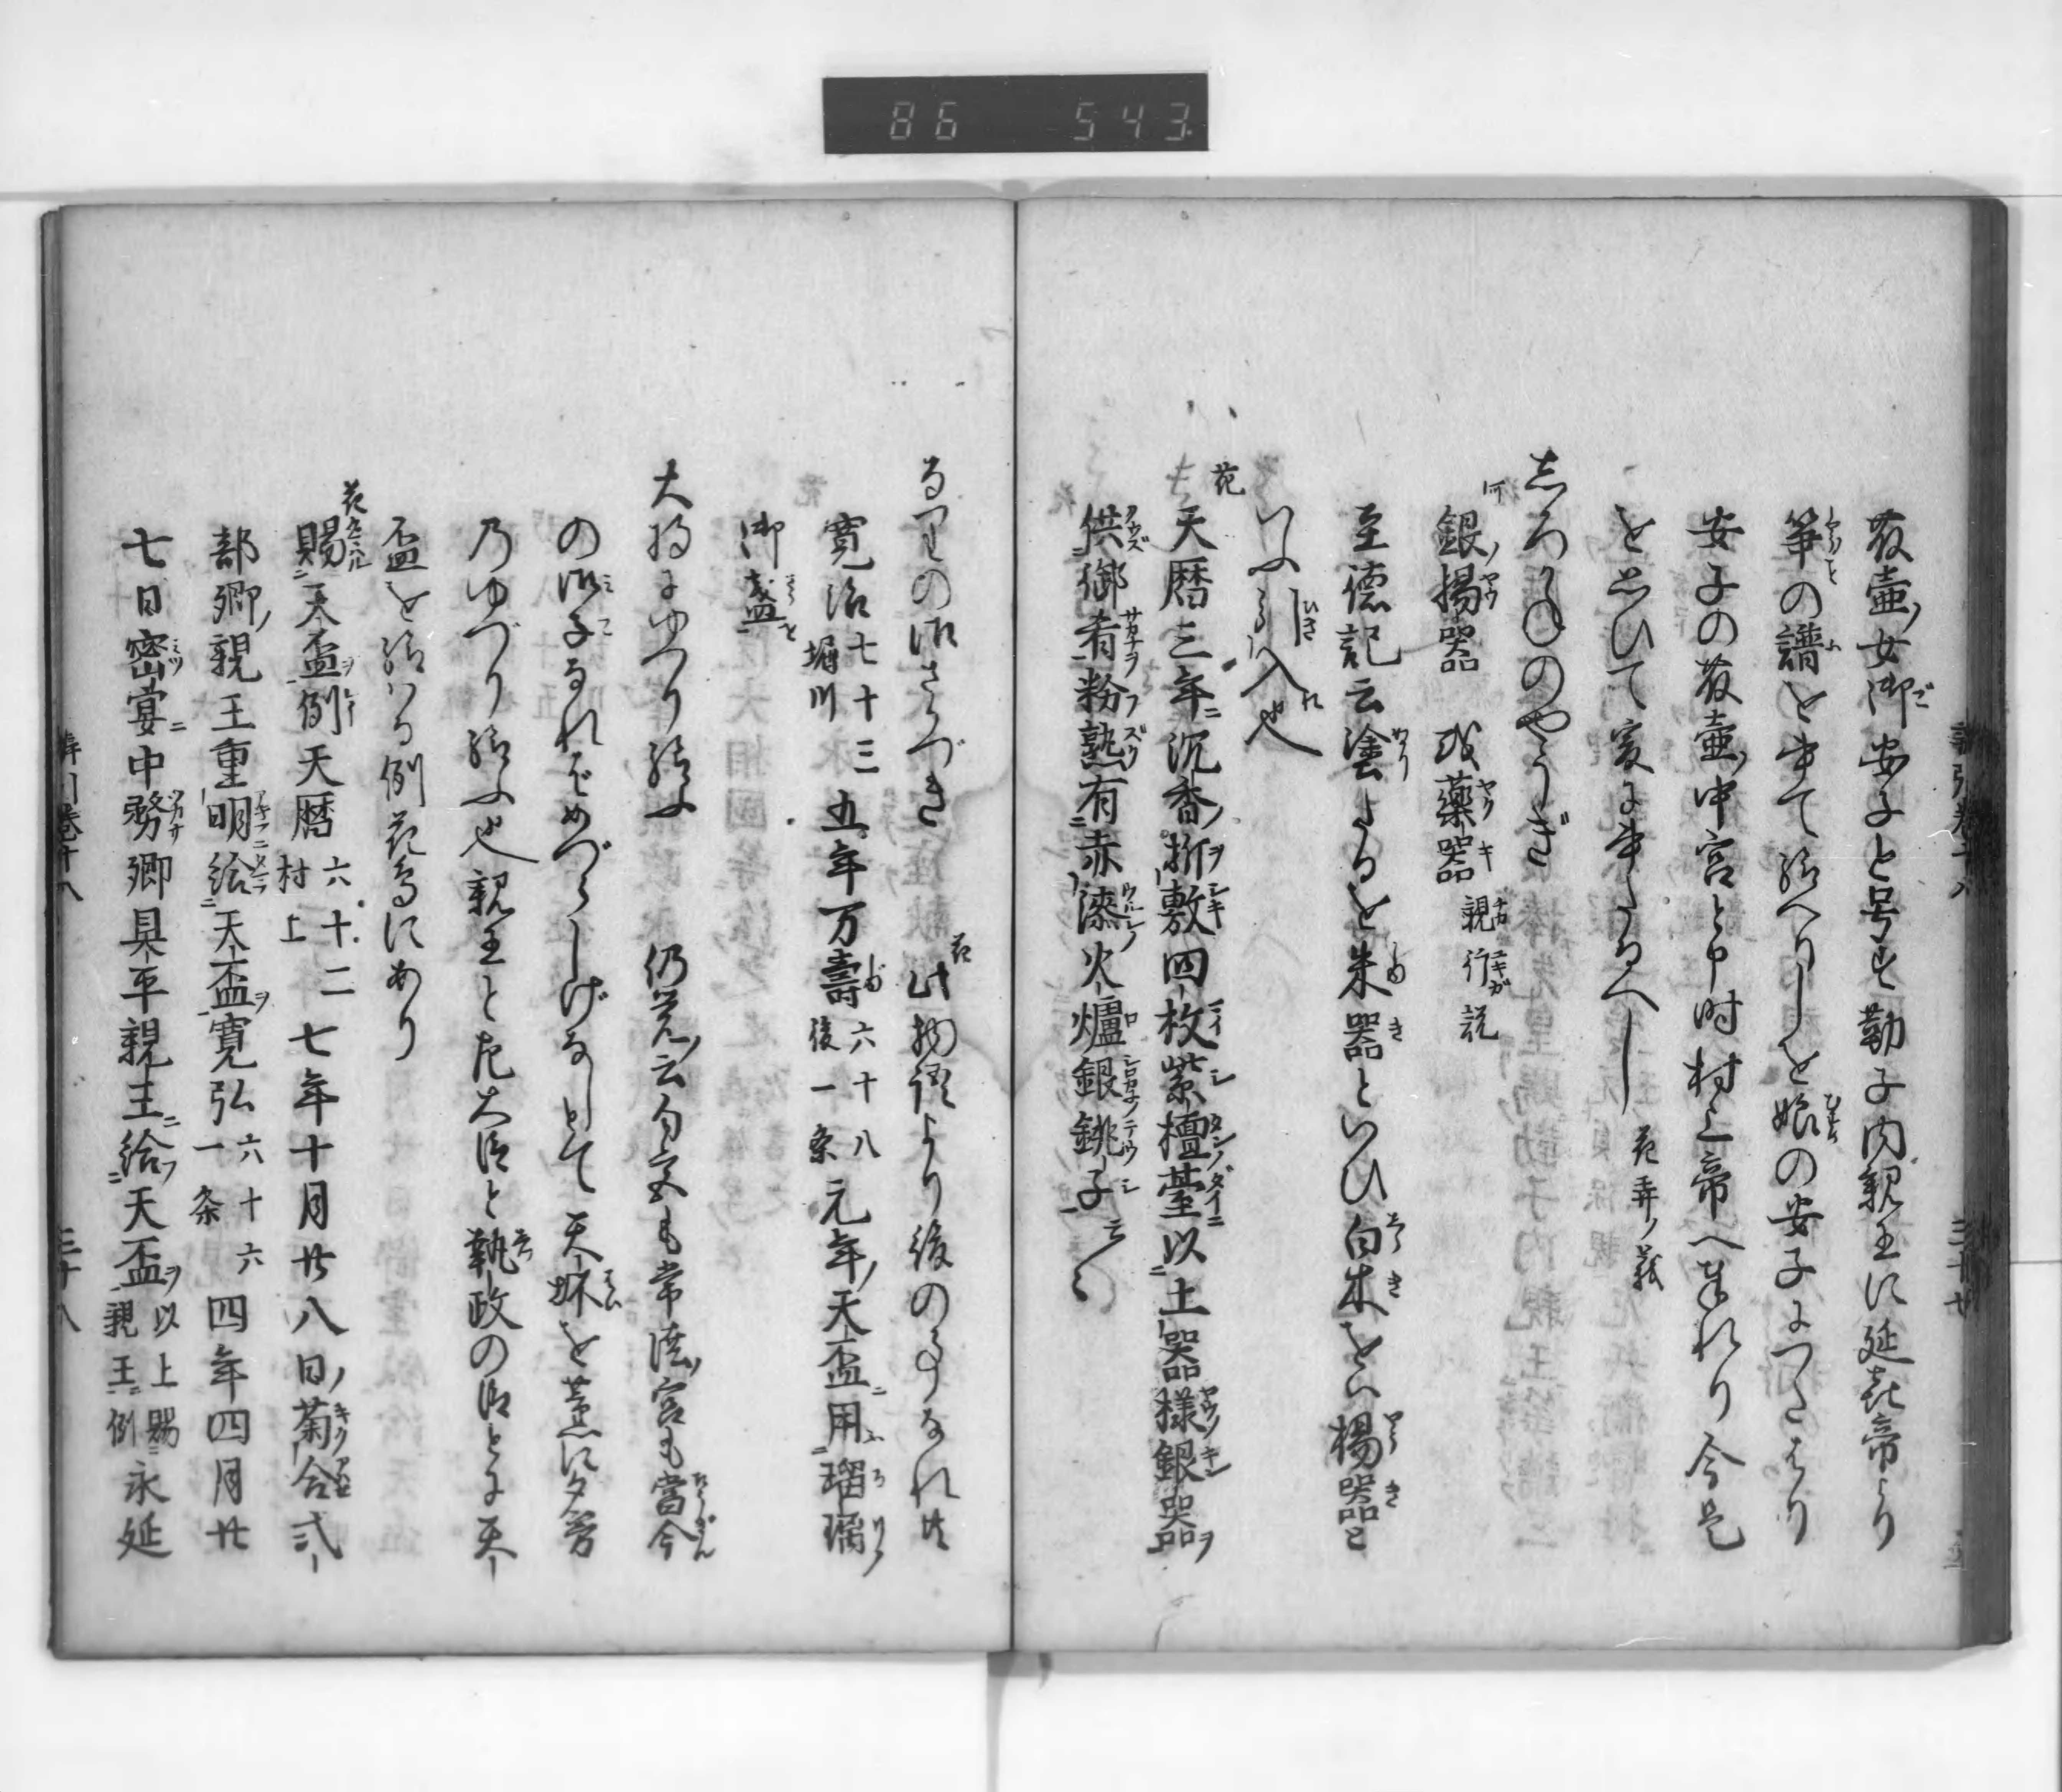 86 543
藤壺ノ女御安子と号す勤子内親王に延喜帝より
箏の譜を書て給へりしを娘の安子につたはり
安子の藤壺ノ中宮と申時村上帝へまいれり今是
を思ひて爰に書たるへし 花弄ノ義
しろかねのやうき
河 銀ノ揚器 或薬器 親行説
至徳記云塗たるを朱器といひ白木をは楊器と
いふし入也
花 天暦三年沉香ノ折敷四枚紫檀臺以土器様銀器
供御肴粉熟有赤漆火爐銀銚子云〻
るりの御さかづき 花 此物語より後の事なれ共
寛治 七十三 堀川 五年万壽 六十八 後一条 元年ノ天盃用瑠璃
御盞
大将にゆつり給ふ 仍覚ノ云匂宮も常陸ノ宮も當今
の御子なれどめづらしげなしとて天坏を薫に夕霧
乃ゆづり給ふ也親王と左大臣と執政の臣とに天
盃を給はる例花鳥にあり
花 賜天盃例天暦 六十二 村上 七年十月廿八日ノ菊合式
部卿ノ親王重明給天盃寛弘 六十六 一条 四年四月廿
七日密宴中務卿具平親王給天盃 以上賜親王例 永延